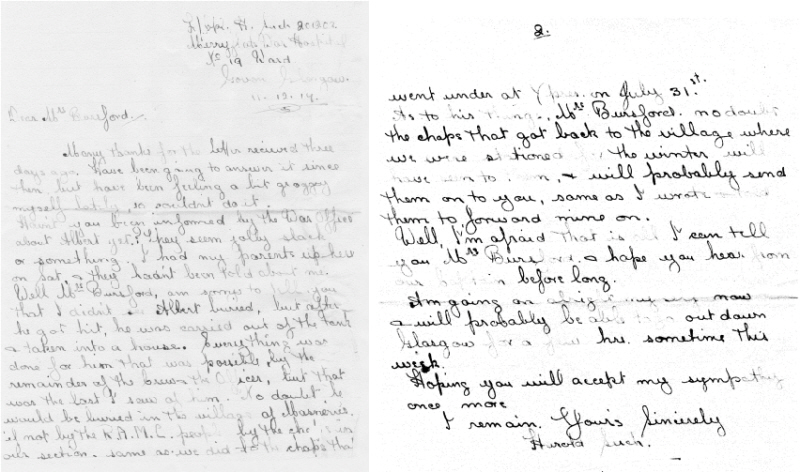 L/Cpl. H. Such
Merry War Hospital
No 19 Ward
Glasgow.
11. 12. 17.
Dear Mrs Bursford.
Many thanks for the letter received three
days ago. Have been going to answer it since
then but have been feeling a bit groggy
myself lately so couldn't do it.
Haven't you been informed by the War Office
about Albert yet? They seem jolly slack
or something. I had my parents up here
on Sat. & they hadn't been told about me.
Well Mrs Bursford, am sorry to tell you
that I didn't see Albert buried, but after
he got hit, he was carried out of the tank
& taken into a house. Everything was
done for him that was possible, by the
remainder of the crew & the Officer, but that
was the last I saw of him. No doubt he
would be buried in the village of Masnieres.
if not by the R.A.M.C. people by the chaps in
our section. same as we did to the chaps that
2.
went under at Ypres on July 31st.
As to his things, Mrs Bursford. no doubt
the chaps that got back to the village where
we were stationed for the winter, will
have seen to them, & will probably send
them on to you, same as I wrote
them to forward mine on.
Well, I'm afraid that is all I can tell
you Mrs Bursford. & hope you hear from
our before long.
Am going on my now
& will probably be able to out down
Glasgow for a few hrs. sometime this
week.
Hoping you will accept my sympathy
once more
I remain. Yours Sincerely
Harold Such.